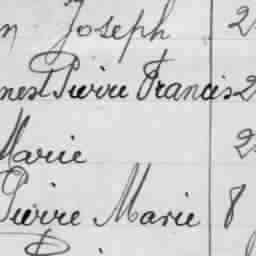 n Joseph 2
nest Pierre Francis 2
Marie 2
Pierre Marie 8